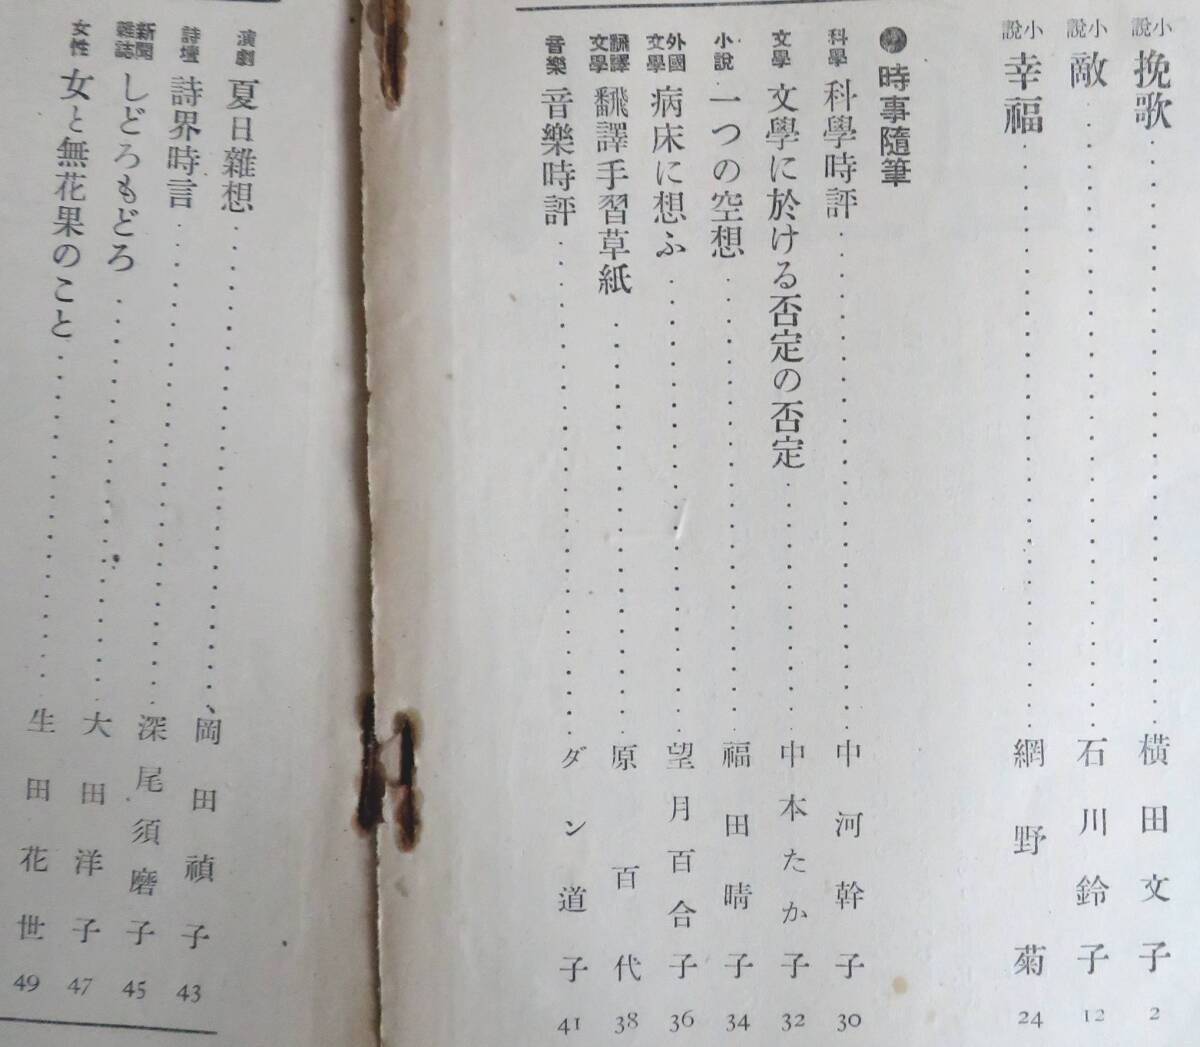 小說 挽歌 横田文子 2
小說 敵 石川鈴子 12
小說 幸福 網野菊 24
時事隨筆
科學 科學時評 中河幹子 30
文學 文學に於ける否定の否定 中本たか子 32
小說 一つの空想 福田晴子 34
外國文學 病床に想ふ 望月百合子 36
飜譯文學 飜譯手習草紙 原百代 38
音樂 音樂時評 ダン道子 41
演劇 夏日雜想 岡田禎子 43
詩壇 詩界時言 深尾須磨子 45
新聞雜誌 しどろもどろ 大田洋子 47
女性 女と無花果のこと 生田花世 49